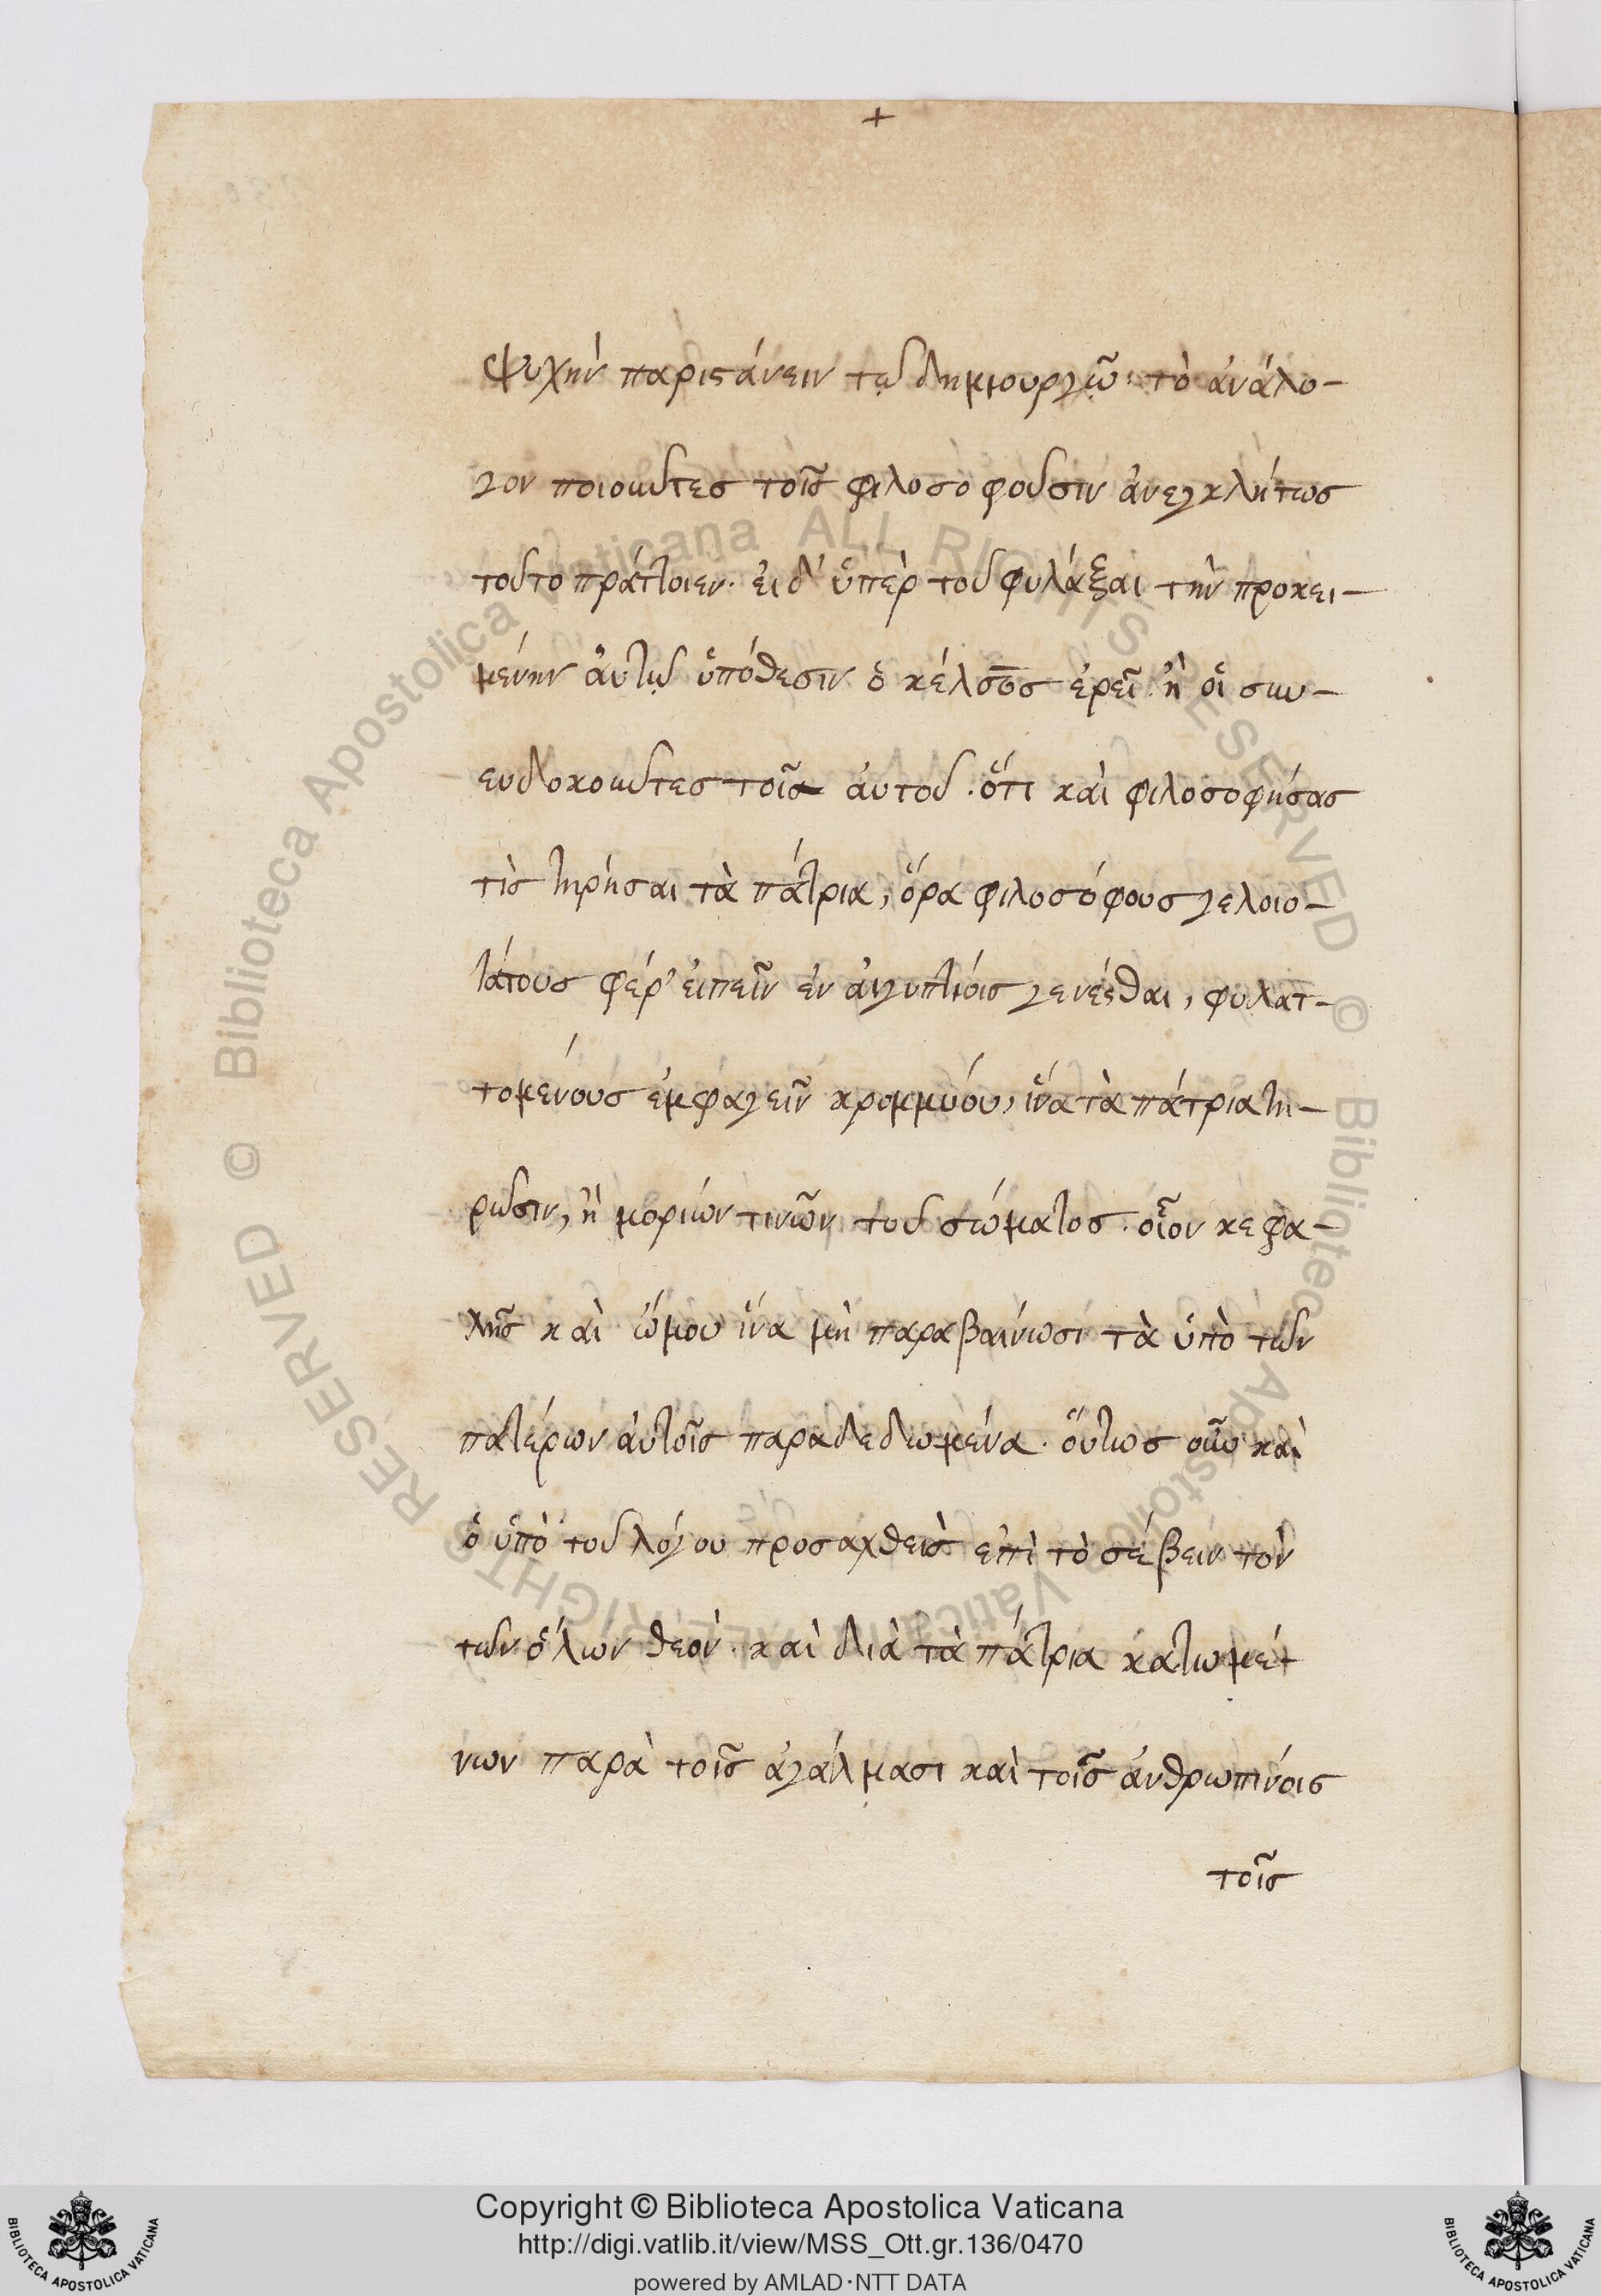 +
ψυχὴν παριστάνειν τῷ δημιουργῷ· τὸ ἀνάλο-
γον ποιοῦντες τοῖς φιλοσοφοῦσιν ἀνεγκλήτως
τοῦτο πράττοιεν· εἰ δ' ὑπὲρ τοῦ φυλάξαι τὴν προκει-
μένην αὐτῷ ὑπόθεσιν ὁ κέλσος ἐρεῖ ἢ οἱ συν-
ευδοκοῦντες τοῖς αὐτοῦ· ὅτι καὶ φιλοσοφήσας
τὶς τηρήσαι τὰ πάτρια, ὅρα φιλοσόφους γελοιο-
τάτους φέρ' εἰπεῖν ἐν αἰγυπτίοις γενέσθαι, φυλατ-
τομένους ἐμφαγεῖν κρομμύου, ἵνα τὰ πάτρια τη-
ρῶσιν, ἢ μορίων τινῶν τοῦ σώματος· οἷον κεφα-
λῆς καὶ ὤμου ἵνα μὴ παραβαίνωσι τὰ ὑπὸ τῶν
πατέρων αὐτοῖς παραδεδομένα· οὕτως οὖν καὶ
ὁ ὑπὸ τοῦ λόγου προσαχθεὶς ἐπὶ τὸ σέβειν τὸν
τῶν ὅλων θεὸν· καὶ διὰ τὰ πάτρια κάτω μέ-
νων παρὰ τοῖς ἀγάλμασι καὶ τοῖς ἀνθρωπίνοις
τοῖς
Copyright © Biblioteca Apostolica Vaticana
http://digi.vatlib.it/view/MSS_Ott.gr.136/0470
powered by AMLAD·NTT DATA
BIBLIOTECA APOSTOLICA VATICANA
BIBLIOTECA APOSTOLICA VATICANA
© Biblioteca Apostolica Vaticana ALL RIGHTS RESERVED
© Biblioteca Apostolica Vaticana ALL RIGHTS RESERVED